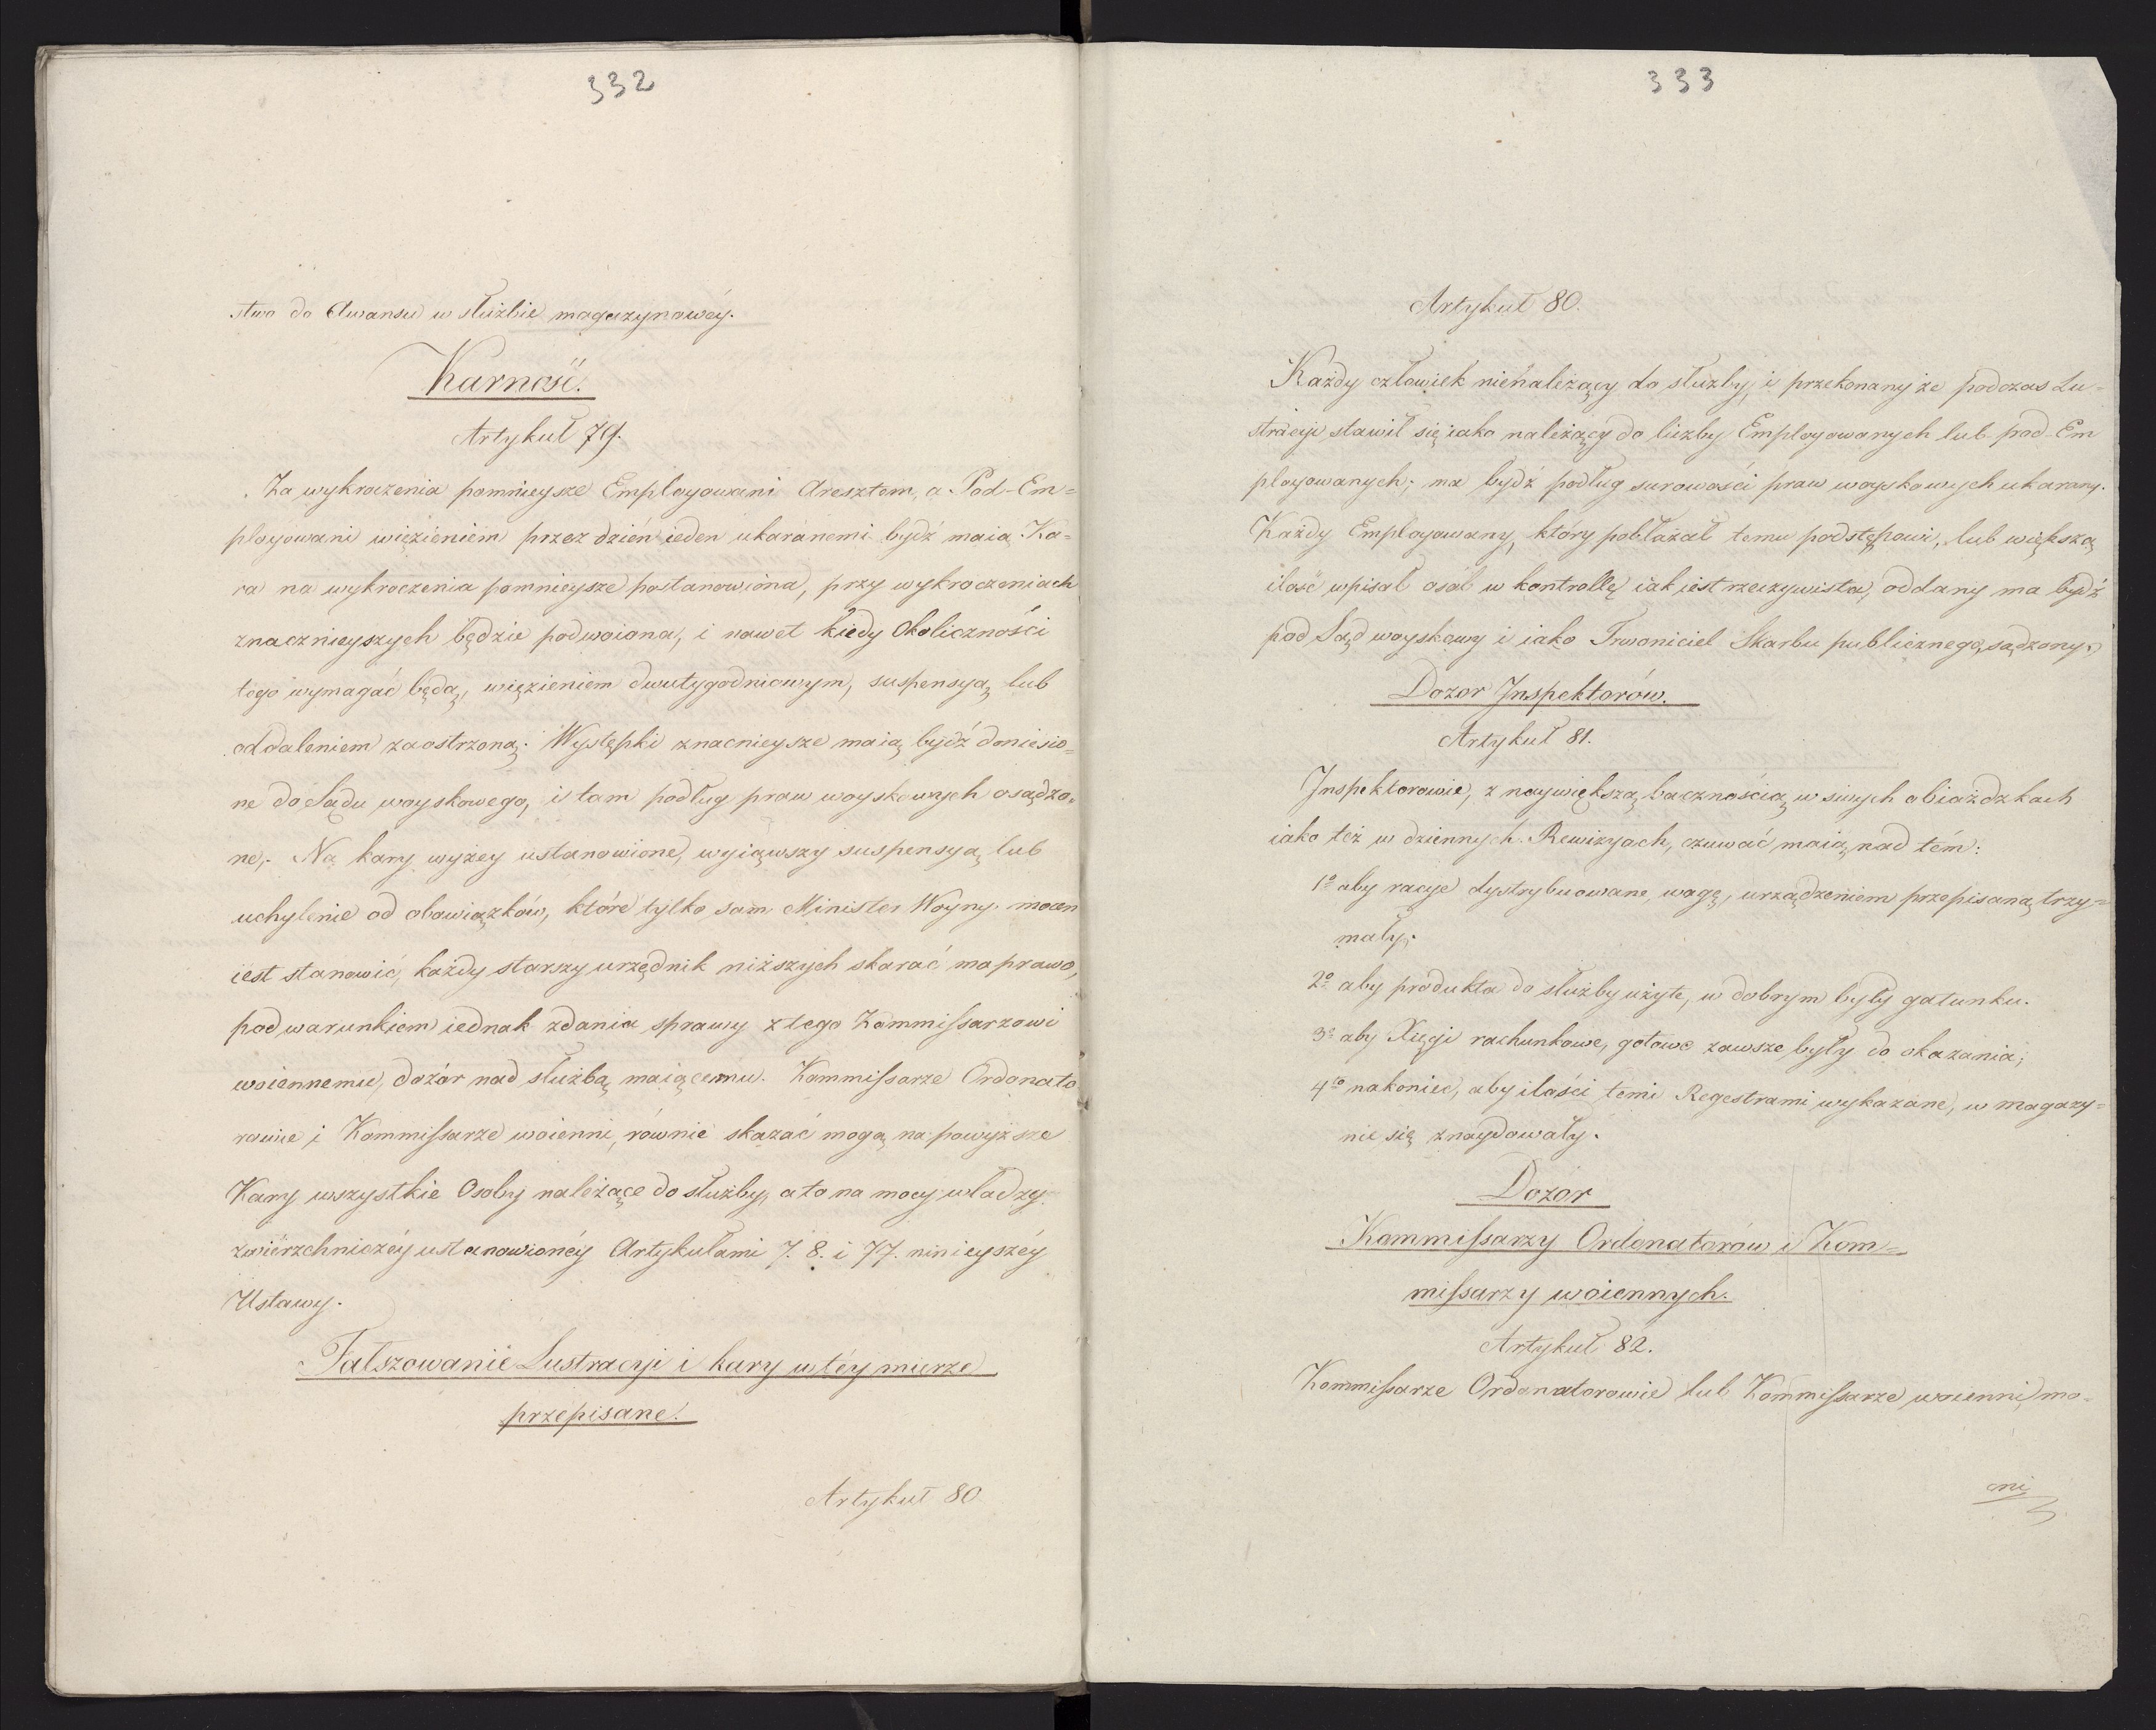 332
stwo do Awansu w służbie magazynowéy.
Karność.
Artykuł 79.
Za wykroczenia pomnieysze Employowani Aresztem, a Pod-Em=
ployowani więzieniem przez dzień ieden ukaranemi bydź maią Ka=
ra na wykroczenia pomnieysze postanowiona, przy wykroczeniach
znacznieyszych będzie podwoiona, i nawet kiedy Okoliczności
tego wymagać będą, więzieniem dwutygodniowym, suspensyą lub
oddaleniem zaostrzoną. Występki znacnieysze maią bydź doniesio=
ne do Sądu woyskowego, i tam podług praw woyskowych osądzo=
ne. Na kary wyżey ustanowione, wyiąwszy suspensyą lub
uchylenie od obowiązków, które tylko sam Minister Woyny mocen
iest stanowić, każdy starszy urzędnik niższych skarać ma prawo,
pod warunkiem iednak zdania sprawy z tego Kommissarzowi
woiennemu, dozór nad służbą maiącemu. Kommissarze Ordonato
rowie i Kommissarze woienni, równie skazać mogą na powyższe
Kary wszystkie Osoby należące do służby, a to na mocy władzy
zwierzchniczéy ustanowionéy Artykułami 7. 8. i 77. ninieyszéy
Ustawy.
Fałszowanie Lustracyi i kary w téy mierze
przepisane.
Artykuł 80
333
Artykuł 80.
Każdy człowiek nienależący do służby, i przekonany że podczas Lu=
stracyi stawił się iako należący do liczby Employowanych lub pod-Em
ployowanych; ma bydź podług surowości praw woyskowych ukarany.
Każdy Employowany, który pobłażał temu podstępowi, lub większą
ilość wpisał osób w kontrollę iak iest rzeczywista, oddany ma bydź
pod Sąd woyskowy i iako Trwoniciel Skarbu publicznego, sądzony.
Dozor Inspektorów.
Artykuł 81.
Inspektorowie, z naywiększą bacznością w swych obiażdzkach
iako też w dziennych Rewizyach, czuwać maią nad tém:
1o aby racye dystrybuowane, wagę, urządzeniem przepisaną trzy=
mały.
2o aby produkta do służby użyte, w dobrym były gatunku.
3o aby Xięgi rachunkowe, gotowe zawsze były do okazania;
4to nakoniec, aby ilości temi Regestrami wykazane, w magazy=
nie się znaydowały.
Dozor
Kommissarzy Ordonatorów i Kom=
missarzy woiennych.
Artykuł 82.
Kommissarze Ordonatorowie lub Kommissarze woienni, mo=